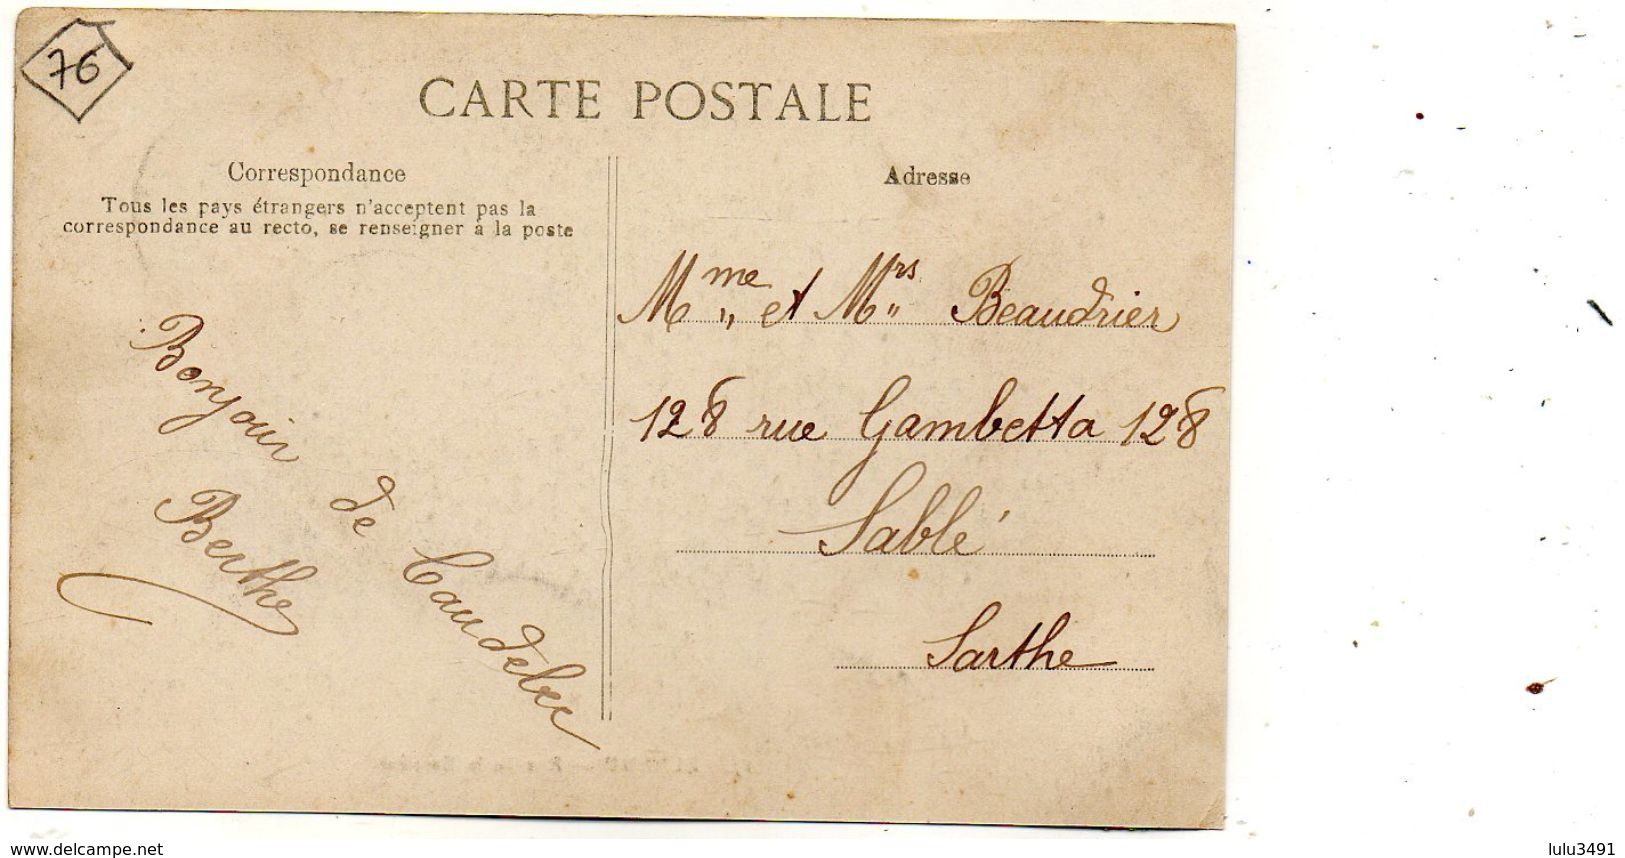 76
CARTE POSTALE
Correspondance
Tous les pays étrangers n'acceptent pas la
correspondance au recto, se renseigner à la poste
Bonjour de Caudebec
Berthe
Adresse
Mme et Mrs Beaudrier
128 rue Gambetta 128
Sablé
Sarthe
www.delcampe.net
lulu3491